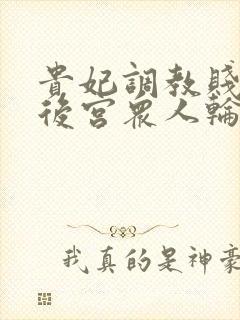 貴妃調教賤
後宮眾人輪
我真的是神豪